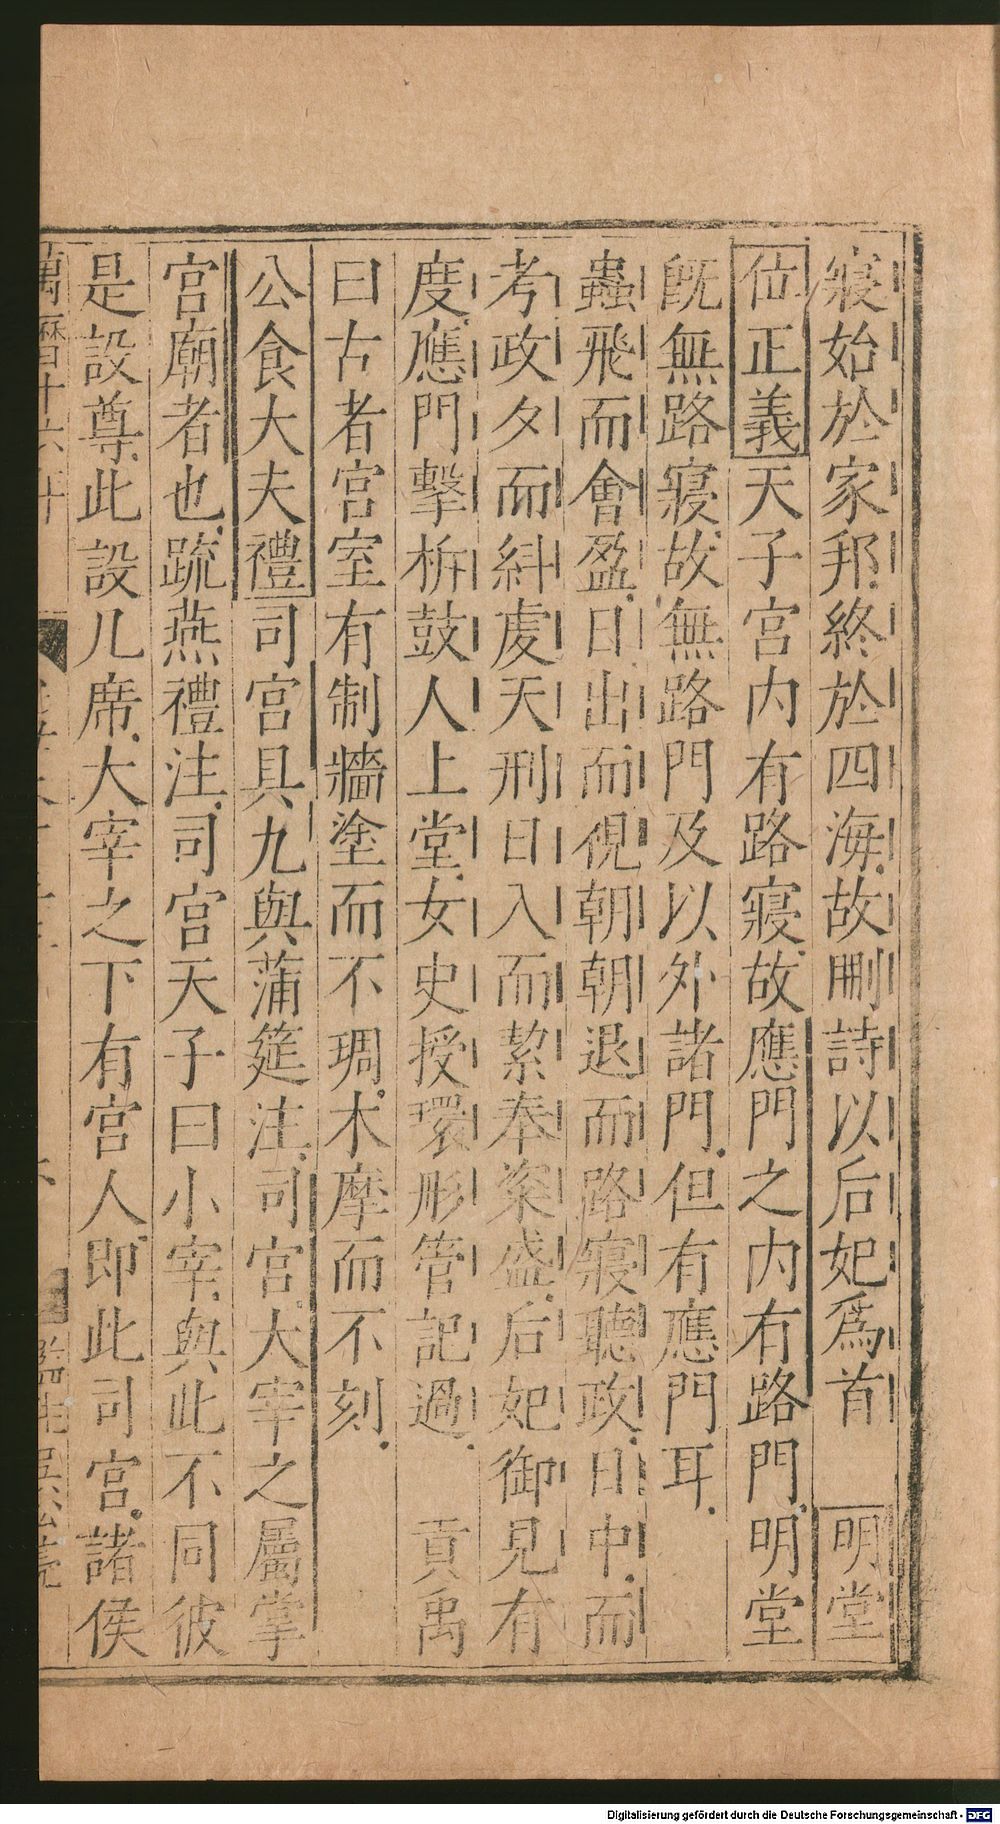 寢始於家邦終於四海故刪詩以后妃爲首　明堂
位正義天子宮內有路寢故應門之內有路門明堂
旣無路寢故無路門及以外諸門但有應門耳
蟲飛而會盈日出而視朝朝退而路寢聽政日中而
考政夕而糾虔天刑日入而絜奉粢盛后妃御見有
度應門擊柝鼓人上堂女史授環彤管記過　貢禹
曰古者宮室有制牆塗而不琱木摩而不刻
公食大夫禮司宮具九與蒲筵注司宮大宰之屬掌
宮廟者也疏燕禮注司宮天子曰小宰與此不同彼
是設尊此設几席大宰之下有宮人卽此司宮諸侯
萬曆十六年
Digitalisierung gefördert durch die Deutsche Forschungsgemeinschaft - DFG